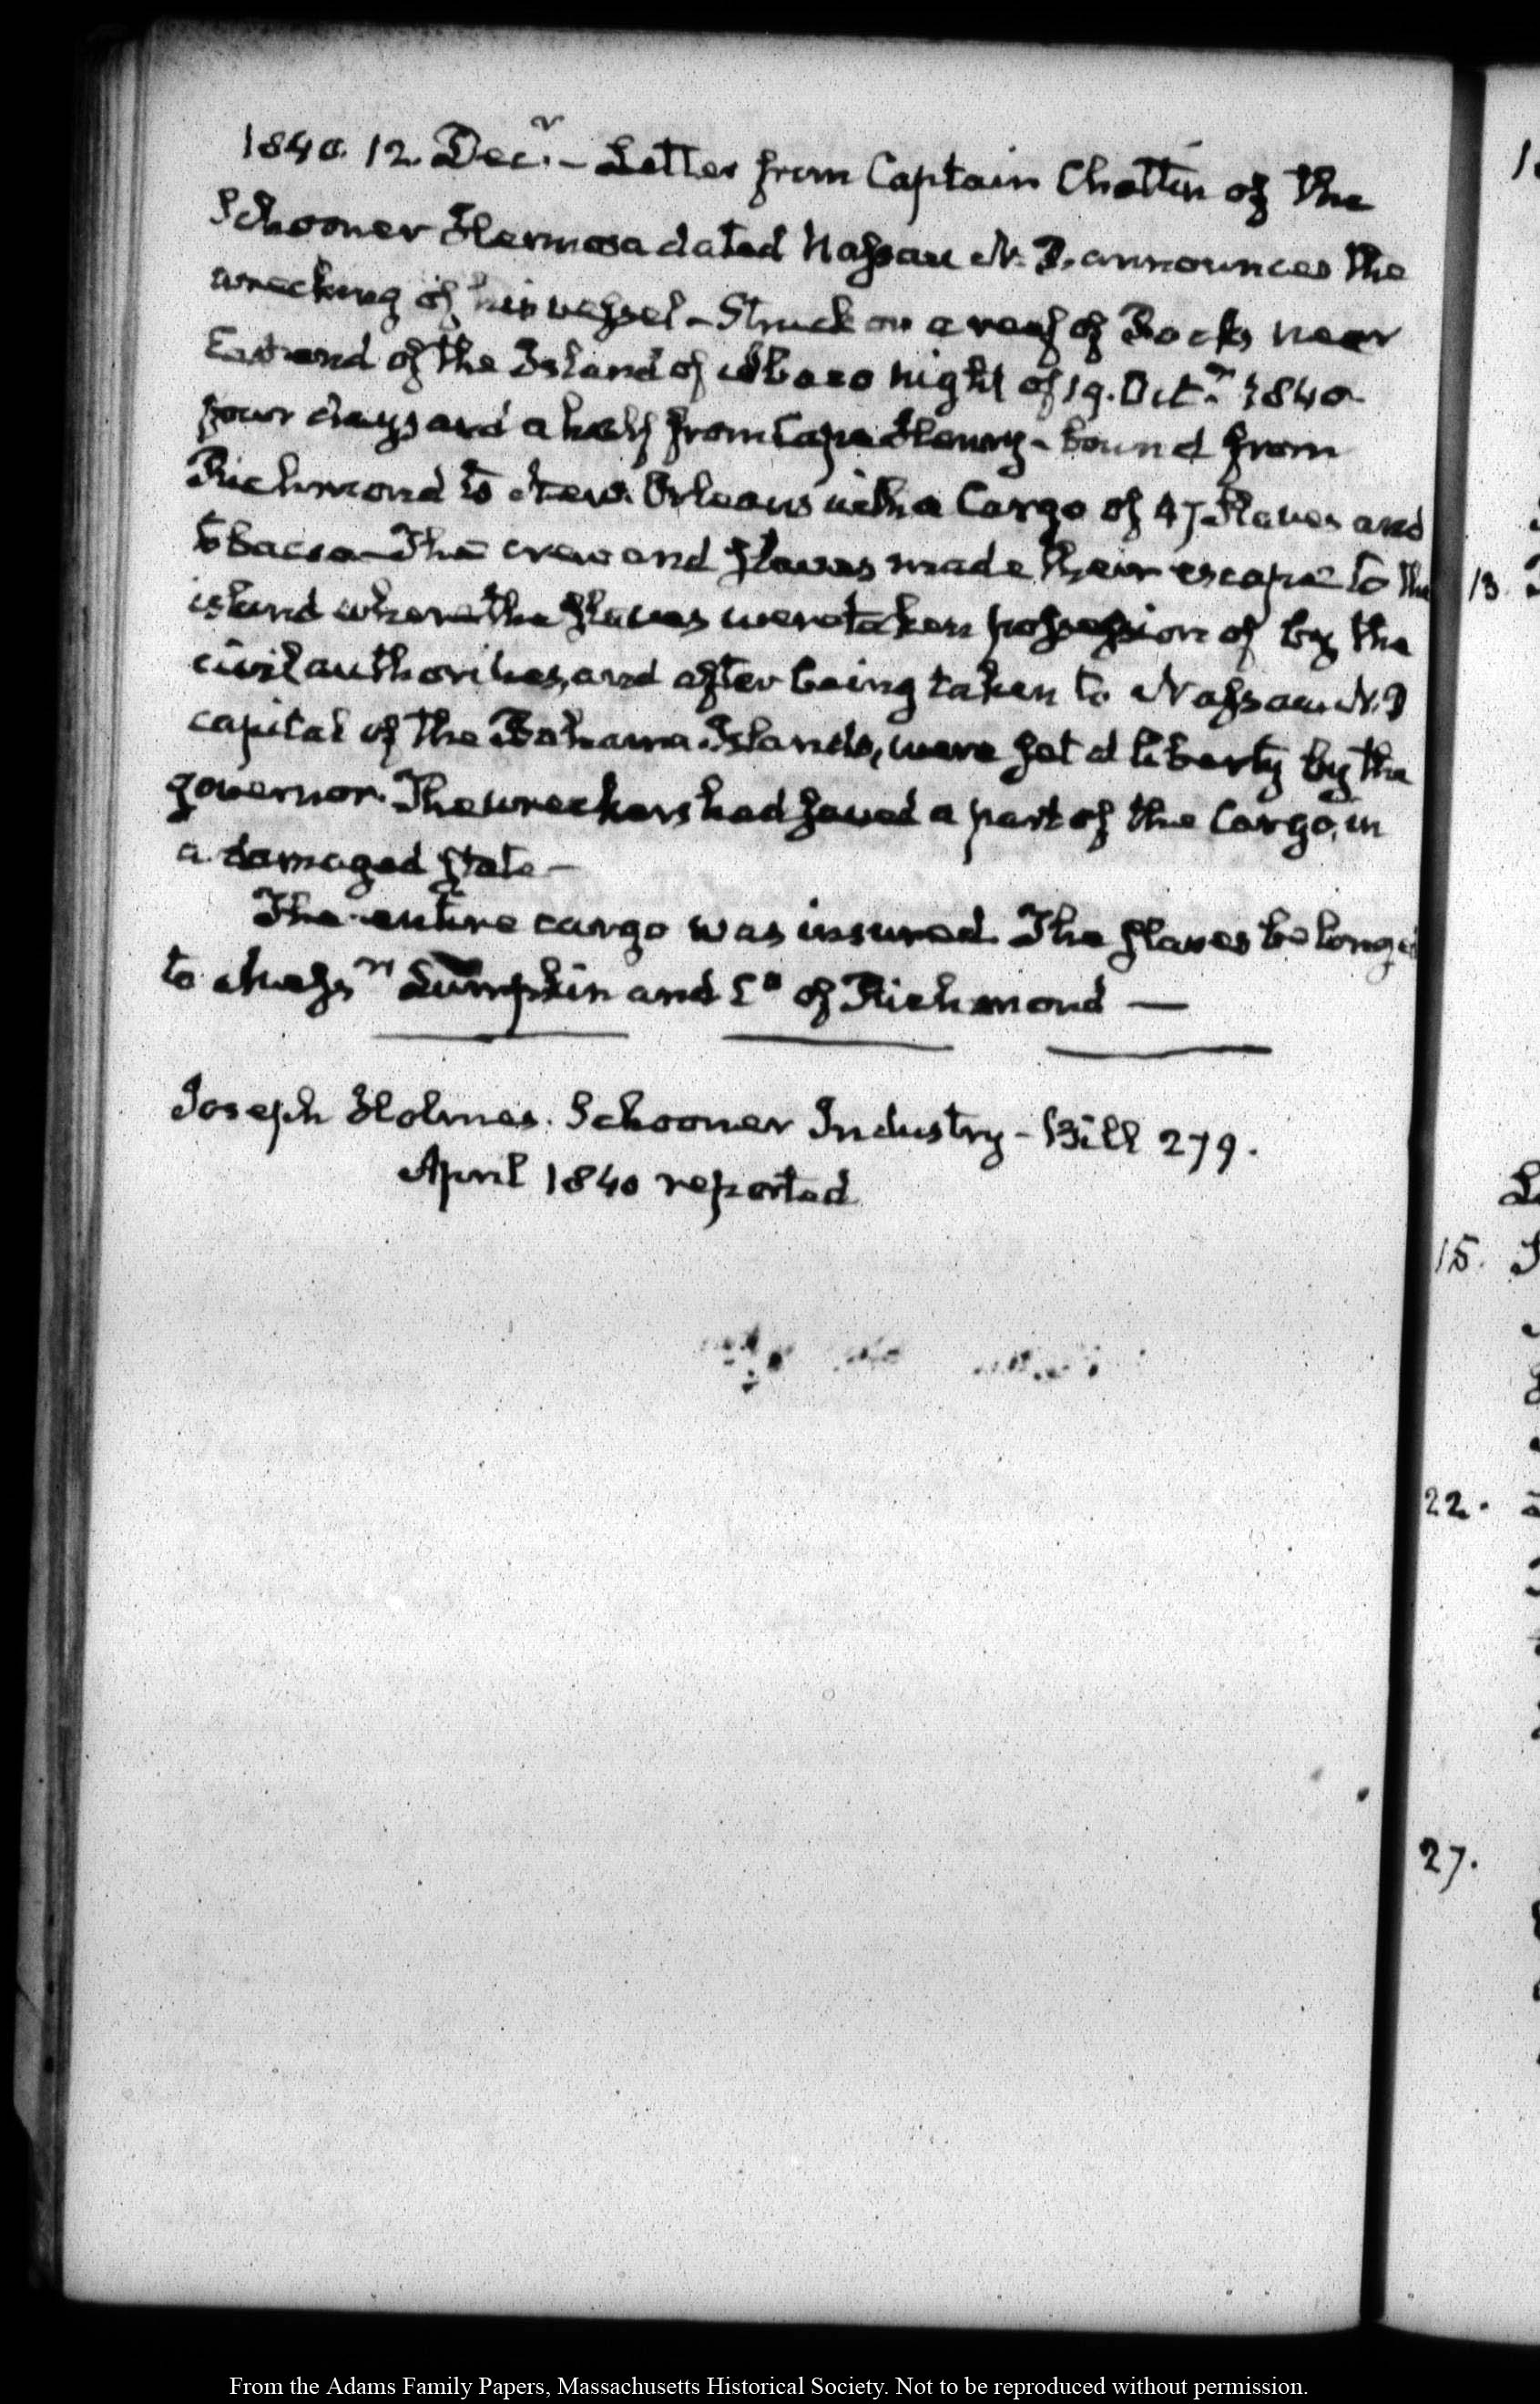 1840. 12. Dec.r – Letter from Captain Chattin of the
Schooner Hermosa dated Nassau N. P. announces the
wrecking of his vessel – Struck on a reef of Rocks near
East end of the Island of Abaco night of 19. Oct.r 1840
four days and a half from Cape Henry – bound from
Richmond to New. Orleans with a Cargo of 47 Slaves and
tobacco – The crew and slaves made their escape to the
island where the slaves were taken possession of by the
civil authorities, and after being taken to Nassau N. P
capital of the Bahama Islands, were set at liberty by the
governor. The wreckers had saved a part of the Cargo, in
a damaged state –
The entire cargo was insured. The slaves belonged
to Messrs Lumpkin and Co of Richmond —
Joseph Holmes. Schooner Industry – Bill 279.
April 1840 reported
13.
15.
22.
27.
From the Adams Family Papers, Massachusetts Historical Society. Not to be reproduced without permission.